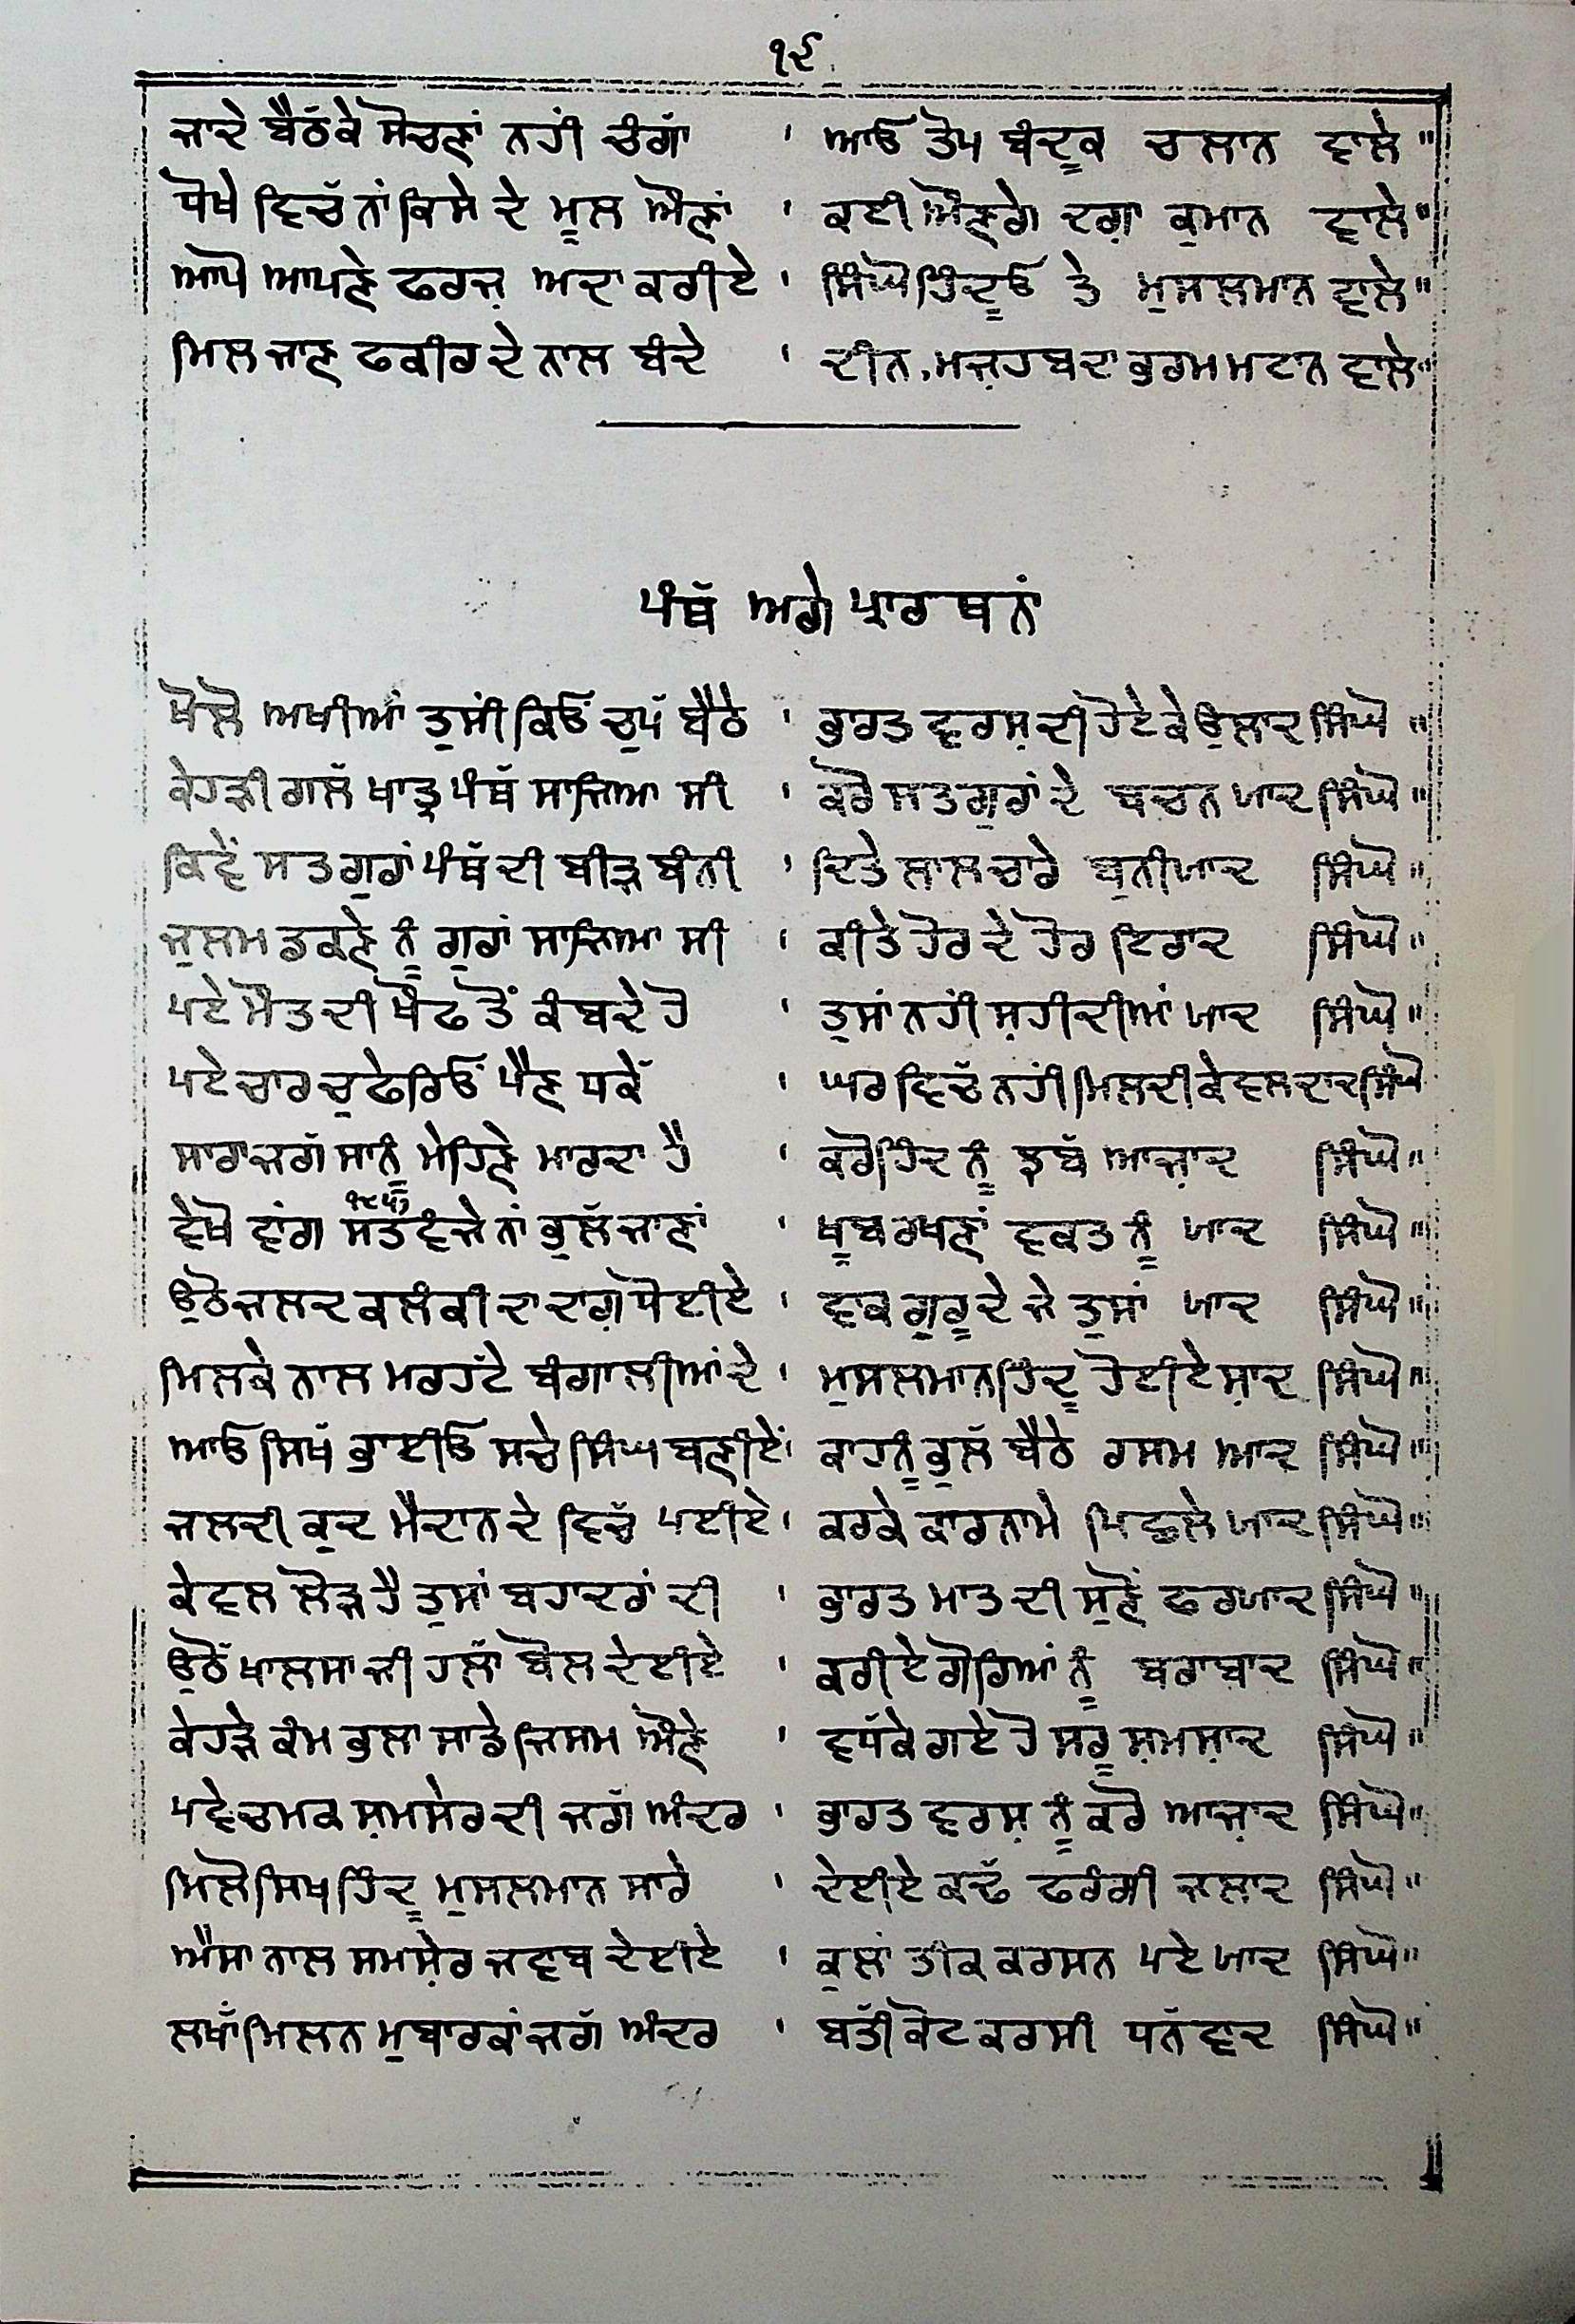 ੧੬
ਜ਼ਾਦੇ ਬੈਠੱਕੇ ਸੋਚਣਾਂ ਨਹੀਂ ਚੰਗਾੱ । ਆਓ ਤੋਪ ਬੰਦੂਕ ਚਲਾਨ ਵਾਲੇ॥
ਧੋਖੇ ਵਿਚੱ ਨਾਂ ਕਿਸੇ ਦੇ ਮੂਲ ਔਣਾਂ । ਕਈ ਔਣਗੇ ਦਗ਼ਾ ਕੁਮਾਨ ਵਾਲੇ॥
ਆਪੋ ਆਪਣੇ ਫਰਜ਼ ਅਦਾ ਕਰੀਏ । ਸਿੰਘੋ ਹਿੰਦੂਓ ਤੇ ਮੁਸਲਮਾਨ ਵਾਲੇ॥
ਮਿਲ ਜਾਣ ਫਕੀਰ ਦੇ ਨਾਲ ਬੰਦੇ । ਦੀਨ, ਮਜ਼ਹਬ ਦਾ ਭੁਰਮ ਮਟਾਨ ਵਾਲੇ॥
ਪੰਥੱ ਅਗੇ ਪ੍ਰਾਰਥਨਾਂ
ਖੋਲੋ ਅਖੀਆਂ ਤੁਸੀਂ ਕਿਓਂ ਚੁਪੱ ਬੈਠੇ । ਭਾਰਤ ਵਰਸ਼ ਦੀ ਹੋਏ ਕੇ ਉਲਾਦ ਸਿੰਘੋ॥
ਕੇਹੜੀ ਗਲੱ ਖਾਤ੍ਰ ਪੰਥੱ ਸਾਜਿਆ ਸੀ । ਕਰੋ ਸਤਗੁਰਾਂ ਦੇ ਬਚਨ ਯਾਦ ਸਿੰਘੋ॥
ਕਿਵੇਂ ਸਤਗੁਰਾਂ ਪੰਥੱ ਦੀ ਬੀੜ ਬੰਨੀ । ਦਿਤੇ ਲਾਲ ਚਾਰੇ ਬੁਨੀਯਾਦ ਸਿੰਘੋ॥
ਜ਼ੁਲਮ ਡਕਣੇ ਨੂੰ ਗੁਰਾਂ ਸਾਜਿਆ ਸੀ । ਕੀਤੇ ਹੋਰ ਦੇ ਹੋਰ ਇਰਾਦ ਸਿੰਘੋ॥
ਪਏ ਮੌਤ ਦੀ ਖੌਫ ਤੋਂ ਕੰਬਦੇ ਹੋ । ਤੁਸਾਂ ਨਹੀਂ ਸ਼ਹੀਦੀਆਂ ਯਾਦ ਸਿੰਘੋ॥
ਪਏ ਚਾਰ ਚੁਫੇਰਿਓਂ ਪੈਣ ਧਕੇੱ । ਘਰ ਵਿਚੱ ਨਹੀਂ ਮਿਲਦੀ ਕੇਵਲ ਦਾਦ ਸਿੰਘੋ
ਸਾਰਾ ਜਗੱ ਸਾਨੂੰ ਮੇਹਿਣੇ ਮਾਰਦਾ ਹੈ । ਕਰੋ ਹਿੰਦ ਨੂੰ ਝਬੱ ਆਜ਼ਾਦ ਸਿੰਘੋ॥
੧੮੫੭
ਵੇਖੋ ਵਾਂਗ ਸਤਵੰਜੇ ਨਾਂ ਭੁਲੱ ਜਾਣਾਂ । ਖੂਬ ਰਖਣਾਂ ਵਕਤ ਨੂੰ ਯਾਦ ਸਿੰਘੋ॥
ਉਠੋ ਜਲਦ ਕਲੰਕੀ ਦਾ ਦਾਗ਼ ਧੋਈਏ । ਵਾਕ ਗੁਰੂ ਦੇ ਜੇ ਤੁਸਾਂ ਯਾਦ ਸਿੰਘੋ॥
ਮਿਲਕੇ ਨਾਲ ਮਰਹਟੇੱ ਬੰਗਾਲੀਆਂ ਦੇ । ਮੁਸਲਮਾਨ ਹਿੰਦੂ ਹੋਈਏ ਸ਼ਾਦ ਸਿੰਘੋ॥
ਆਓ ਸਿਖੱ ਭਾਈਓ ਸਚੇ ਸਿੰਘ ਬਣੀਏਂ । ਕਾਹਨੂੰ ਭੁਲੱ ਬੈਠੇ ਰਸਮ ਆਦ ਸਿੰਘੋ॥
ਜਲਦੀ ਕੁਦ ਮੈਦਾਨ ਦੇ ਵਿਚੱ ਪਈਏ । ਕਰਕੇ ਕਾਰਨਾਮੇ ਪਿਛਲੇ ਯਾਦ ਸਿੰਘੋ॥
ਕੇਵਲ ਲੋੜ ਹੈ ਤੁਸਾਂ ਬਹਾਦਰਾਂ ਦੀ । ਭਾਰਤ ਮਾਤ ਦੀ ਸੁਣੋਂ ਫਰਯਾਦ ਸਿੰਘੋ॥
ਉਠੋੱ ਖਾਲਸਾ ਜੀ ਹਲਾੱ ਬੋਲ ਦੇਈਏ । ਕਰੀਏ ਗੋਰਿਆਂ ਨੂੰ ਬਰਾਬਾਦ ਸਿੰਘੋ॥
ਕੇਹੜੇ ਕੰਮ ਭੁਲਾ ਸਾਡੇ ਜਿਸਮ ਔਣੇ । ਵਧੱਕੇ ਗਏ ਹੋ ਸਰੂ ਸ਼ਮਸ਼ਾਦ ਸਿੰਘੋ॥
ਪਵੇ ਚਮਕ ਸ਼ਮਸੇਰ ਦੀ ਜਗੱ ਅੰਦਰ । ਭਾਰਤ ਵਰਸ਼ ਨੂੰ ਕਰੋ ਆਜ਼ਾਦ ਸਿੰਘੋ॥
ਮਿਲੋ ਸਿਖ ਹਿੰਦੂ ਮੁਸਲਮਾਨ ਸਾਰੇ । ਦੇਈਏ ਕਢੱ ਫਰੰਗੀ ਜਲਾਦ ਸਿੰਘੋ॥
ਐਸਾ ਨਾਲ ਸਮਸ਼ੇਰ ਜਵਾਬ ਦੇਈਏ । ਕੁਲਾਂ ਤੀਕ ਕਰਸਨ ਪਏ ਯਾਦ ਸਿੰਘੋ॥
ਲਖਾਂੱ ਮਿਲਨ ਮੁਬਾਰਕਾਂ ਜਗੱ ਅੰਦਰ । ਬਤੀੱ ਕੋਟ ਕਰਸੀ ਧਨੱਵਾਦ ਸਿੰਘੋ॥